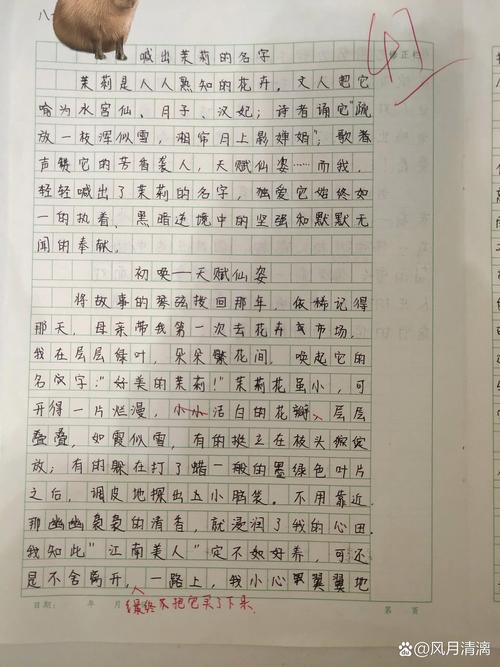 八
喊出茉莉的名字
修正栏
茉莉是人人熟知的花卉,文人把它
喻为水宫仙、月子、汉妃;诗者诵它"疏
放一枝浑似雪,湘帘月上影婵娟";歌者
声赞它的芳香袭人,天赋仙姿……而我,
轻轻喊出了茉莉的名字,独爱它始终如
一的执着、黑暗逆境中的坚强和默默无
闻的奉献。
初唤——天赋仙姿
将故事的琴弦拨回那年,依稀记得
那天,母亲带我第一次去花卉市场,
我在层层绿叶,朵朵繁花间,唤起它的
名字:"好美的茉莉!"茉莉花虽小,可
开得一片烂漫,小小洁白的花瓣、层层
叠叠,如霞似雪,有的挺立在枝头绽
放;有的躲在打了蜡一般的墨绿色叶片
之后,调皮地探出五小脑袋。不用靠近
那幽幽袅袅的清香,就浸润了我的心田。
我知此"江南美人"定不如好养,可还
是不舍离开,一路上,我小心翼翼地
最终把它买了下来
日期: 年 月 第 页
@风月清漓